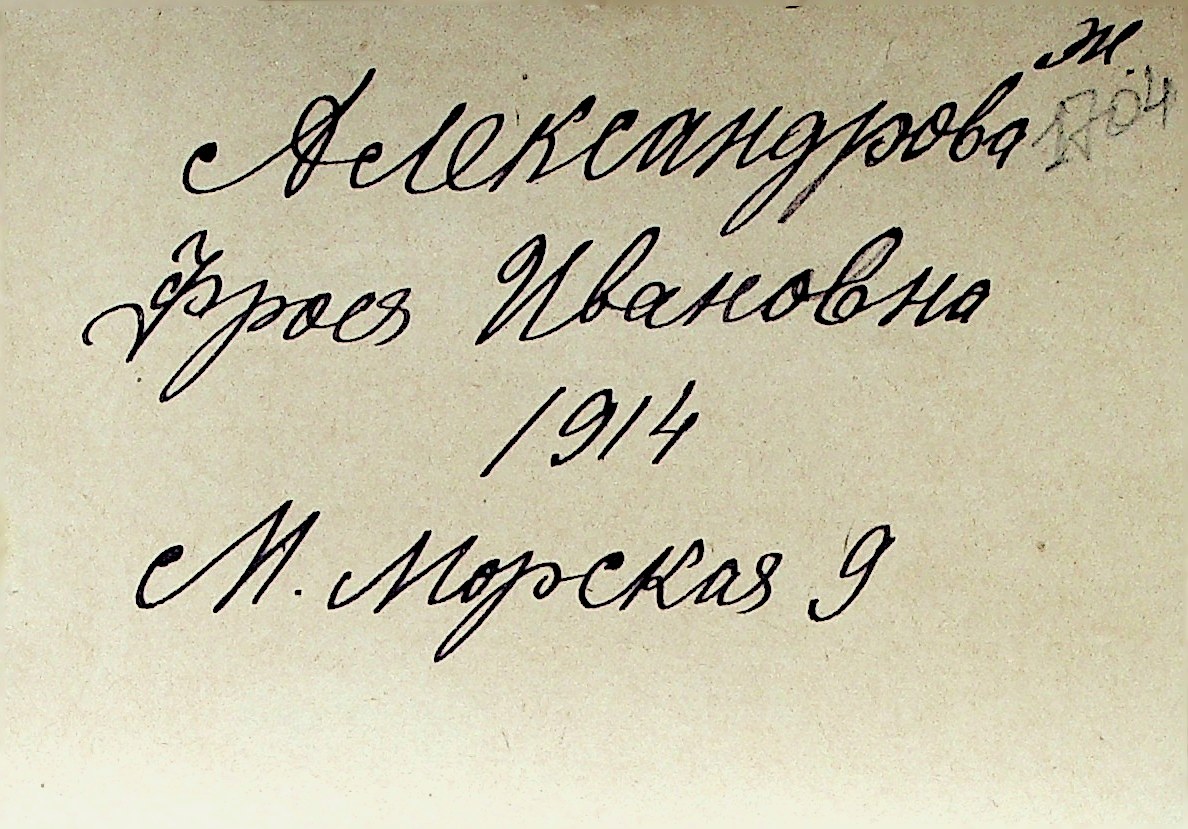 ж.
Александрова 1704
Фрося Ивановна
1914
М. Морская 9